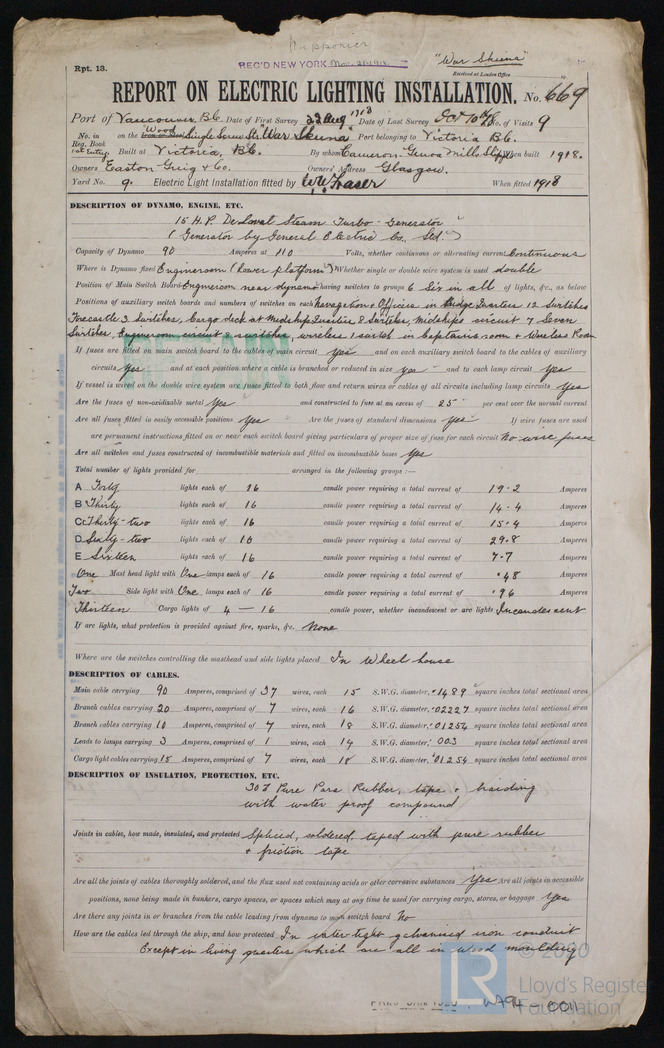 Nipponier
Rpt. 13.
REC'D NEW YORK Nov.
"War Skeena"
Received at London Office
REPORT ON ELECTRIC LIGHTING INSTALLATION. No. 669
Port of Vancouver B.C. Date of First Survey 22 Aug 1918 Date of Last Survey Oct 10th/18 No. of Visits 9
No. in Reg. Book 1st Entry on the Iron or Steel Wood Single Screw Str "War Skeena" Port belonging to Victoria B.C.
Built at Victoria, B.C. By whom Cameron-Genoa Mills When built 1918.
Owners Easton Greig & Co. Owners' Address Glasgow.
Yard No. 9. Electric Light Installation fitted by Fraser When fitted 1918
DESCRIPTION OF DYNAMO, ENGINE, ETC.
15 H.P. De Laval Steam Turbo-Generator
(Generator by General Electric Co. Ltd.)
Capacity of Dynamo 90 Amperes at 110 Volts, whether continuous or alternating current Continuous
Where is Dynamo fixed Engineroom (lower platform) Whether single or double wire system is used double
Position of Main Switch Board Engineroom near dynamo having switches to groups 6 Six in all of lights, &c., as below
Positions of auxiliary switch boards and numbers of switches on each Navagation & Officers in Bridge Quarters 12 Switches
Forecastle 3 Switches, Cargo deck at Midship Quarters 8 Switches, Midships circuit 7 Seven
Switches, Engineroom circuit 8 switches, wireless 1 switch in Captains room & Wireless Room
If fuses are fitted on main switch board to the cables of main circuit yes and on each auxiliary switch board to the cables of auxiliary
circuits yes and at each position where a cable is branched or reduced in size yes and to each lamp circuit yes
If vessel is wired on the double wire system are fuses fitted to both flow and return wires or cables of all circuits including lamp circuits yes
Are the fuses of non-oxidizable metal yes and constructed to fuse at an excess of 25 per cent over the normal current
Are all fuses fitted in easily accessible positions yes Are the fuses of standard dimensions yes If wire fuses are used
are permanent instructions fitted on or near each switch board giving particulars of proper size of fuse for each circuit No wire fuses
Are all switches and fuses constructed of incombustible materials and fitted on incombustible bases yes
Total number of lights provided for arranged in the following groups :—
A Forty lights each of 16 candle power requiring a total current of 19.2 Amperes
B Thirty lights each of 16 candle power requiring a total current of 14.4 Amperes
C Thirty-two lights each of 16 candle power requiring a total current of 15.4 Amperes
D Sixty-two lights each of 16 candle power requiring a total current of 29.8 Amperes
E Sixteen lights each of 16 candle power requiring a total current of 7.7 Amperes
One Mast head light with One lamps each of 16 candle power requiring a total current of .48 Amperes
Two Side light with One lamps each of 16 candle power requiring a total current of .96 Amperes
Thirteen Cargo lights of 4 — 16 candle power, whether incandescent or arc lights Incandescent
If arc lights, what protection is provided against fire, sparks, &c. None
Where are the switches controlling the masthead and side lights placed In Wheel house
DESCRIPTION OF CABLES.
Main cable carrying 90 Amperes, comprised of 37 wires, each 15 S.W.G. diameter, .1489 square inches total sectional area
Branch cables carrying 20 Amperes, comprised of 7 wires, each 16 S.W.G. diameter, .02227 square inches total sectional area
Branch cables carrying 10 Amperes, comprised of 7 wires, each 18 S.W.G. diameter, .01254 square inches total sectional area
Leads to lamps carrying 3 Amperes, comprised of 1 wires, each 14 S.W.G. diameter, .003 square inches total sectional area
Cargo light cables carrying 15 Amperes, comprised of 7 wires, each 18 S.W.G. diameter, .01254 square inches total sectional area
DESCRIPTION OF INSULATION, PROTECTION, ETC.
30% Pure Para Rubber, tape & braiding
with water proof compound
Joints in cables, how made, insulated, and protected Spliced, soldered, taped with pure rubber
& friction tape
Are all the joints of cables thoroughly soldered, and the flux used not containing acids or other corrosive substances Yes Are all joints in accessible
positions, none being made in bunkers, cargo spaces, or spaces which may at any time be used for carrying cargo, stores, or baggage Yes
Are there any joints in or branches from the cable leading from dynamo to main switch board No
How are the cables led through the ship, and how protected In water-tight galvanised iron conduit
Except in living quarters which are all in wood moulding
© 2020
LR
Lloyd's Register
Foundation
W794-0011